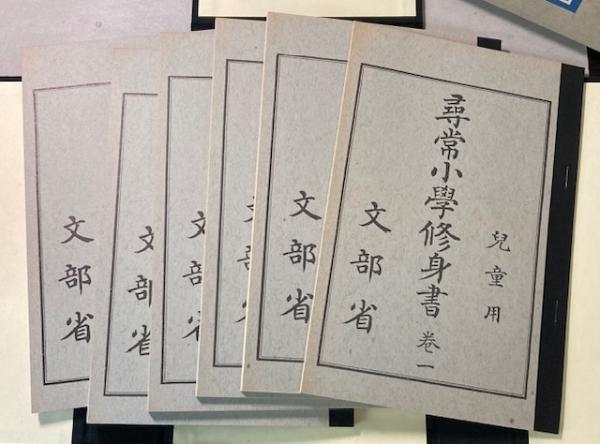 兒童用
尋常小學修身書 卷一
文部省
文部省
文部省
文部省
文部省